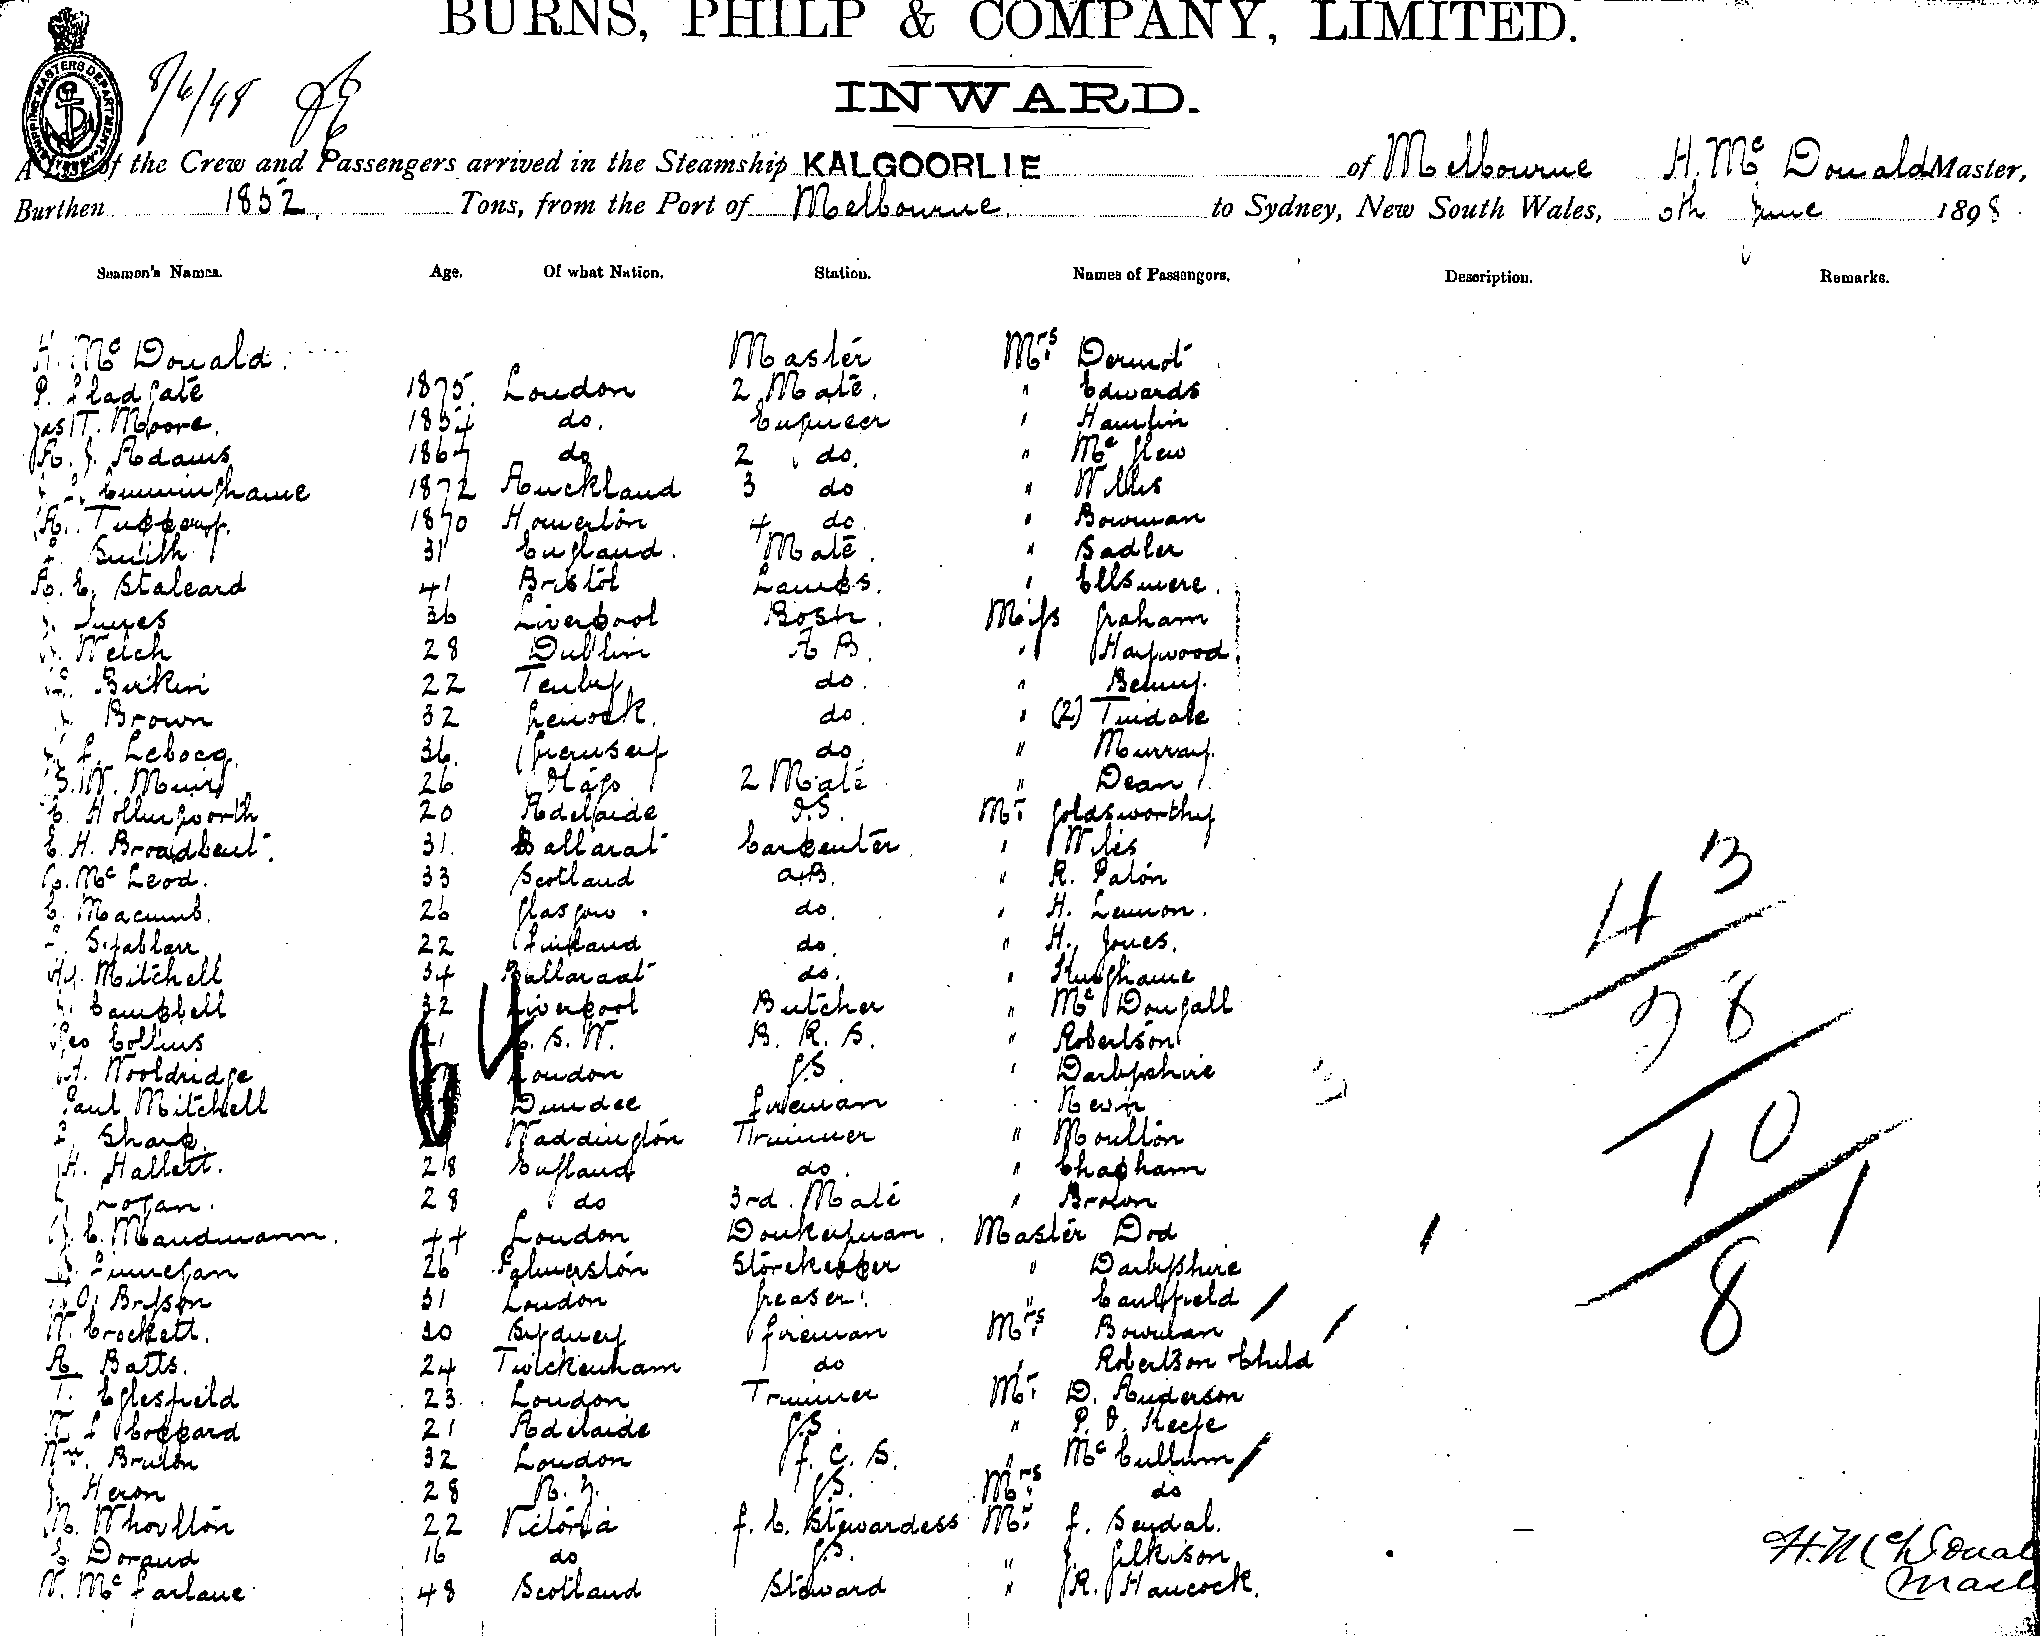 BURNS, PHILP & COMPANY, LIMITED.
INWARD.
8/6/98
of the Crew and Passengers arrived in the Steamship KALGOORLIE of Melbourne H. Mc Donald Master,
Burthen 1852 Tons, from the Port of Melbourne to Sydney, New South Wales, June 1898
Seamen's Names. Age. Of what Nation. Station. Names of Passengers. Description. Remarks.
H. Mc Donald. Master Mrs Dermot
P. Gladgate 1875 London 2 Mate. " Edwards
Jas T. Moore. 1854 do. Engineer " Hamlin
A. J. Adams 1867 do 2 do. " Mc Glew
Cunninghame 1872 Auckland 3 do " Willis
A. 1870 Homerton 4 do. " Bowman
Smith 31 England. Mate. " Sadler
A. E. Staleard 41 Bristol Lamps. " Ellsmere.
36 Liverpool Bosn. Miss Graham
Welch 28 Dublin A B. " Haywood.
Birkin 22 Tenby do. "
Brown 32 do. " (2) Tindale
Lebocq. 36. Guernsey do. " Murray.
W. Muir 26 Otago 2 Mate " Dean
Hollingworth 20 Adelaide O.S. Mr Goldsworthy
E. H. Broadbent. 31. Ballarat Carpenter " Wiles
Mc Leod. 33 Scotland A.B. " R. Paton
C. Macumb. 26 Glasgow. do. " H. Lemon.
22 Finland do. " H. Jones.
Hy. Mitchell 34 Ballaraat do. "
Campbell 32 Liverpool Butcher " Mc Dougall
Geo Collins S. W. B. R. S. " Robertson
Wooldridge London G.S. " Darbyshire
Paul Mitchell Dundee Fireman Nevin
Sharp. Waddington Trimmer " Moulton
H. Hallett. 28 England do. " Chapham
Logan. 28 do 3rd. Mate " Brown
Maudmann. 44 London Donkeyman. Master Dod
Finnegan 26 Palmerston Storekeeper " Darbyshire
Bryson 31 London Greaser. " Caulfield
W. Crockett. 30 Sydney Fireman Mrs Bowman
A Batts. 24 Twickenham do " Robertson Child
Eglesfield 23. London Trimmer Mr D. Anderson
Coppard 21 Adelaide G.S. " P. O. Keefe
Wm. Bruton 32 London F. C. S. " Mc Cullum
J. Heron 28 N. Z. G.S. Mrs do
M. Whoulton 22 Victoria F. C. Stewardess Mr F. Sendal.
C. Dorand 16 do G.S. " J. Gilkison
W. Mc Farlane 48 Scotland Steward " R. Hancock.
64
43
38
10
1
8
H. McDonal